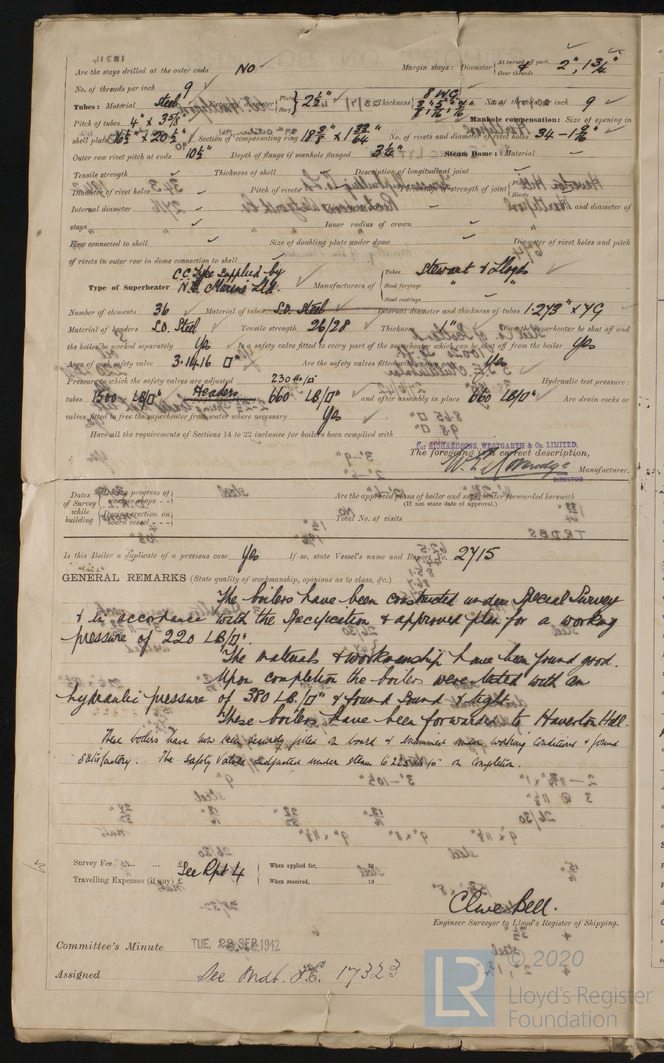 Are the stays drilled at the outer ends No Margin stays: Diameter { At turned off part, or Over threads 2", 1 3/4"
No. of threads per inch 9
Tubes: Material Steel 2 1/2" Thickness 8 W.G. No. of threads per inch 9
Pitch of tubes 4" x 3 7/8" Manhole compensation: Size of opening in
shell plate 16 1/2" x 20 1/2" Section of compensating ring No. of rivets and diameter of rivet holes 34 - 1 9/16"
Outer row rivet pitch at ends 10 1/2" Depth of flange if manhole flanged 3 1/2" Steam Dome: Material
Tensile strength Thickness of shell Description of longitudinal joint
Diameter of rivet holes Pitch of rivets strength of joint
Internal diameter and diameter of
stays Inner radius of crown
How connected to shell Size of doubling plate under dome Diameter of rivet holes and pitch
of rivets in outer row in dome connection to shell
Type of Superheater C.C. Type supplied by N.E. Marine Ltd. Manufacturers of { Tubes Stewart & Lloyds
Steel forgings
Steel castings
Number of elements 36 Material of tubes S.D. Steel Internal diameter and thickness of tubes 1.273" x 7G
Material of headers S.D. Steel Tensile strength 26/28 Thickness Can the superheater be shut off and
the boiler be worked separately Yes Is a safety valve fitted to every part of the superheater which can be shut off from the boiler Yes
Area of each safety valve 3.1416 □" Are the safety valves fitted with easing gear Yes
Pressure to which the safety valves are adjusted 230 lb/□" Hydraulic test pressure:
tubes 1500 LB/□" Headers 660 LB/□" and after assembly in place 660 LB/□" Are drain cocks or
valves fitted to free the superheater from water where necessary Yes
Have all the requirements of Sections 14 to 22 inclusive for boilers been complied with
For RICHARDSONS, WESTGARTH & Co. LIMITED.
The foregoing is a correct description,
Manufacturer.
DIRECTOR
Dates of Survey while building { During progress of work in shops - - } Are the approved plans of boiler and superheater forwarded herewith
(If not state date of approval.)
{ During erection on board vessel - - - } Total No. of visits
Is this Boiler a duplicate of a previous case Yes If so, state Vessel's name and Report No. 2715
GENERAL REMARKS (State quality of workmanship, opinions as to class, &c.)
The boilers have been constructed under Special Survey
& in accordance with the Specification & approved plan for a working
pressure of 220 LB/□".
The materials & workmanship have been found good.
Upon completion the boilers were tested with an
hydraulic pressure of 380 LB/□" & found sound & tight.
These boilers have been forwarded to Haverton Hill.
These boilers have now been securely fitted on board & examined under working conditions & found
satisfactory. The safety valves adjusted under steam to 225 lb/□" on completion.
Survey Fee ... ... £ See Rpt 4 When applied for,
Travelling Expenses (if any) £ When received, 19
Clive Bell.
Engineer Surveyor to Lloyd's Register of Shipping.
Committee's Minute TUE. 29 SEP 1942
Assigned 17323
LR © 2020
Lloyd's Register
Foundation